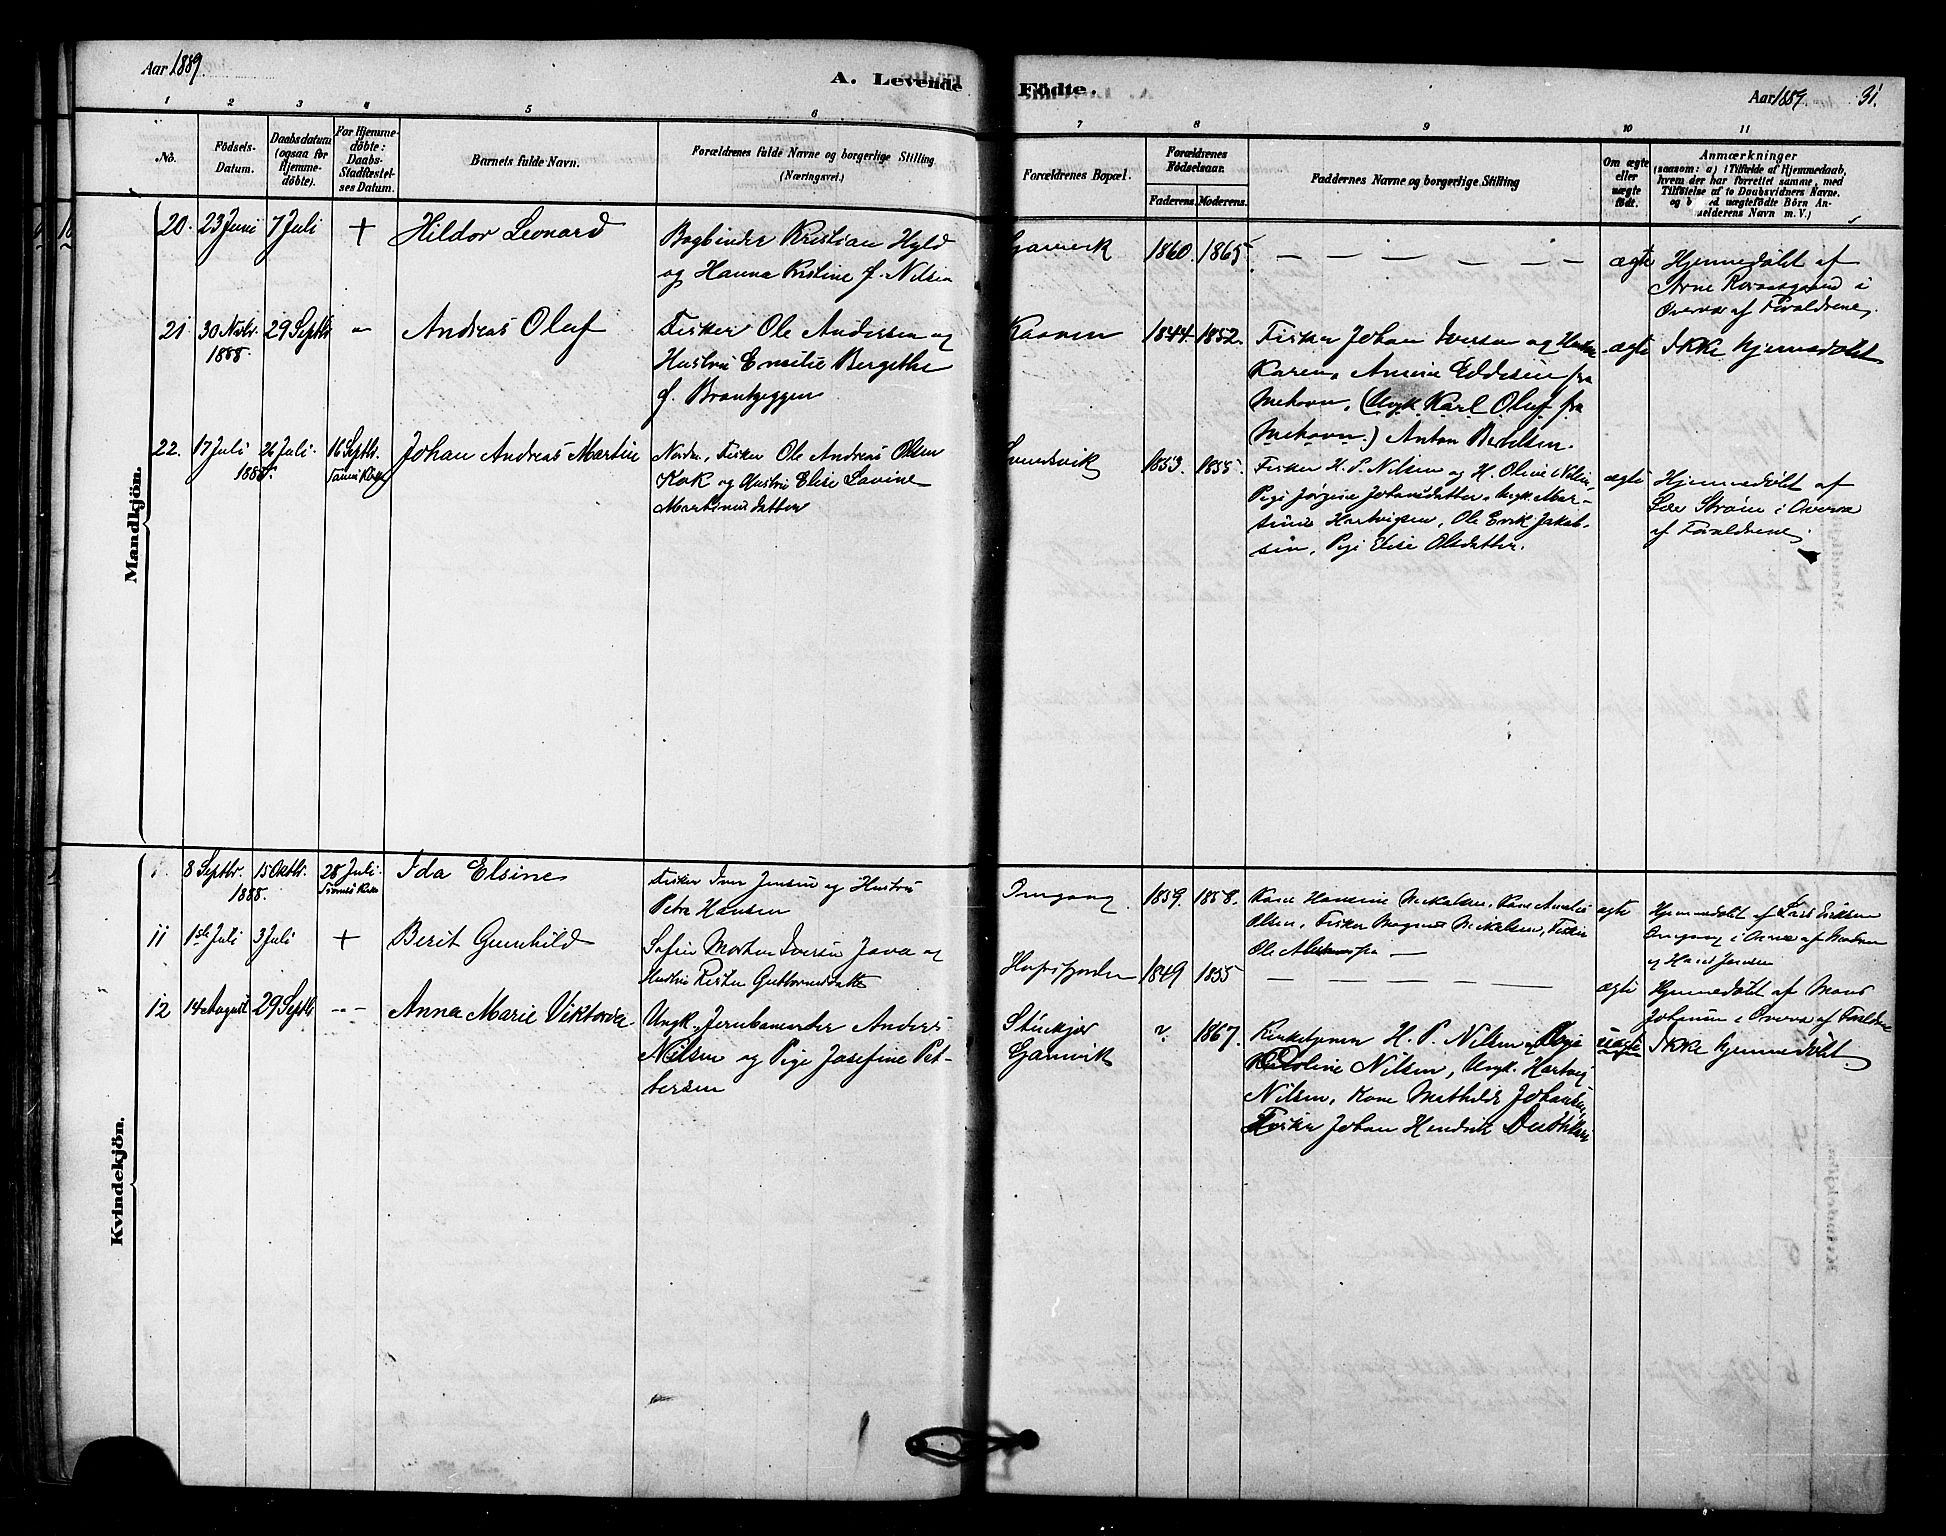 Aar 1889.
A. Levende
Födte.
Aar 1889. 31.
1 2 3 4 5 6 7 8 9 10 11
No.
Födsels-
Datum.
Daabsdatum
(ogsaa for
Hjemme-
döbte).
For Hjemme-
döbte:
Daabs-
Stadfæstel-
ses Datum.
Barnets fulde Navn.
Forældrenes fulde Navne og borgerlige Stilling
(Næringsvei.)
Forældrenes Bopæl.
Forældrenes
Födselsaar.
Faderens. Moderens.
Faddernes Navne og borgerlige Stilling
Om ægte
eller
uægte
födt.
Anmærkninger
(saasom: a) i Tilfælde af Hjemmedaab,
hvem der har forrettet samme, med
Tilföielse af to Daabsvidners Navne.
og b) ved uægtefödte Börn An-
melderens Navn m. V.)
Mandkjön.
20. 23 Juni 7 Juli + Hildor Leonard
Bogbinder Kristian Hyld
og Hanna Kristine f. Nilsen
Gamvik 1860. 1865. — — — — — — ægte
Hjemmedøbt af
Arne
Overvær af Forældrene.
21 30 Novbr.
1888.
29 Septbr - Andreas Oluf
Fisker Ole Andersen og
Hustru Emilie Bergethe
f. Brantzeggen
Kaaven 1844. 1852.
Fisker Johan Iversen og Hustru
Karen Amine Eddisen fra
Mehavn, (Ungk. Karl Oluf fra
Mehavn.) Anton Berthelsen.
ægte Ikke hjemmedøbt
22. 17 Juli 26 Juli
1888.
16 Septbr.
Johan Andreas Martin
Nordm. Fisker Ole Andreas Olsen
Kok og Hustru Elise Lavine
Martinusdatter
1853. 1855.
Fisker H. P. Nilsen og H. Oline Nilsen,
Pige Jørgine Johansdatter, Ungk. Mar-
Hartvigsen, Ole Erik Jakob-
sen, Pige Elise Olsdatter.
ægte
Hjemmedøbt af
Strøm i Overvær
af Forældrene.
Kvindekjön.
8 Septbr. 15 Oktbr.
1888.
28 Juli.
Ida Elsine
Fisker Iver Jensen og Hustru
Petra Hansen
Omgang 1859. 1858.
Kone Hansine Mikalsen, Kone Amalie
Olsen, Fisker Magnus Mikalsen, Fisker
Ole
ægte
Hjemmedøbt af Lars Eriksen
Omgang i Overvær af
og Hans Jensen
11 1ste Juli 3 Juli + Berit Gunhild
Morten Iversen Java og
Hustru
Hopsfjorden 1849 1855 — — — — — ægte
Hjemmedøbt af Mons
Johansen i Overvær af Forældrene
12 14 August 29 Septbr -- Anna Marie Viktoria
Ungk. Anders
Nilsen og Pige Josefine Pet-
tersen
Gamvik ? 1867.
H. P. Nilsen og
Karoline Nilsen, Ungk. Hartvig
Nilsen, Kone Mathilde Johansen,
Fisker Johan Hendrik
uægte Ikke hjemmedøbt